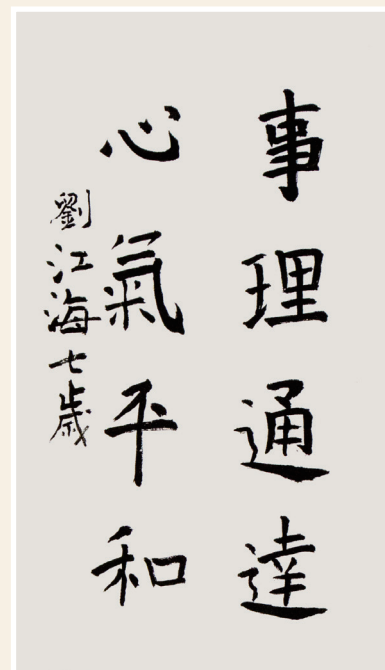 事理通達
心氣平和
劉江海七歲